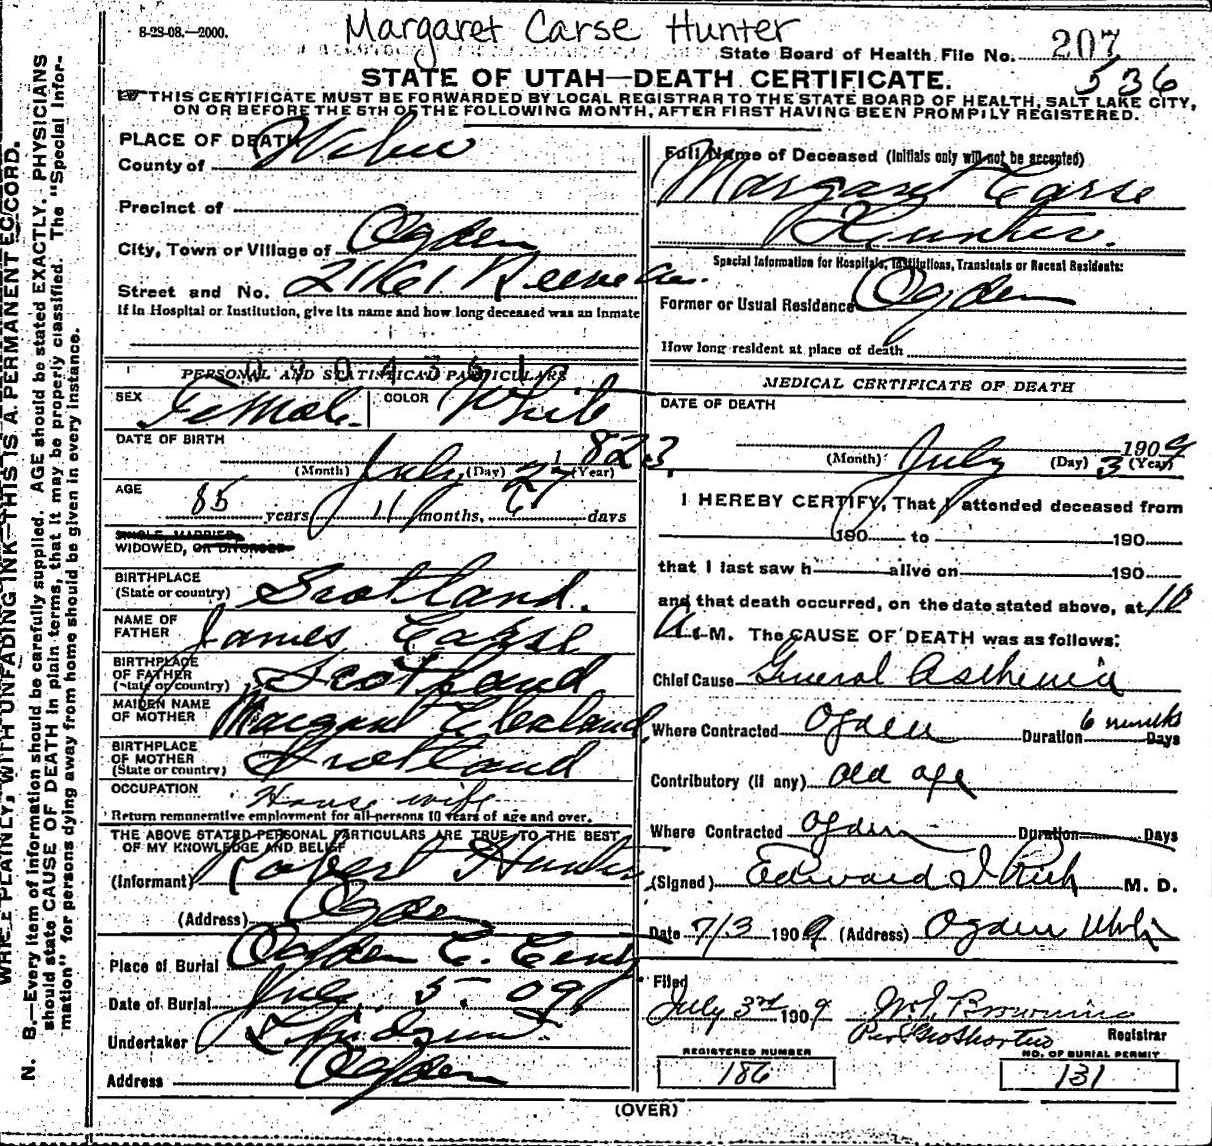 Margaret Carse Hunter
8-23-08.—2000.
State Board of Health File No. 207
536
STATE OF UTAH—DEATH CERTIFICATE.
THIS CERTIFICATE MUST BE FORWARDED BY LOCAL REGISTRAR TO THE STATE BOARD OF HEALTH, SALT LAKE CITY,
ON OR BEFORE THE 5TH OF THE FOLLOWING MONTH, AFTER FIRST HAVING BEEN PROMPILY REGISTERED.
PLACE OF DEATH
County of Weber
Precinct of
City, Town or Village of Ogden
Street and No. 2161 Reeves Av.
If in Hospital or Institution, give its name and how long deceased was an inmate
Full Name of Deceased (Initials only will not be accepted)
Margaret Carse
Hunter.
Special Information for Hospitals, Institutions, Transients or Recent Residents:
Former or Usual Residence Ogden
How long resident at place of death
PERSONAL AND STATISTICAL PARTICULARS
0304361
SEX Female. COLOR White
DATE OF BIRTH
(Month) July (Day) 27 (Year) 1823.
AGE
85 years 11 months, 6 days
SINGLE, MARRIED,
WIDOWED, OR DIVORCED
BIRTHPLACE
(State or country) Scotland.
NAME OF
FATHER James Carse
BIRTHPLACE
OF FATHER
(State or country) Scotland
MAIDEN NAME
OF MOTHER Margaret Cleland
BIRTHPLACE
OF MOTHER
(State or country) Scotland
OCCUPATION House wife
Return remunerative employment for all persons 10 years of age and over.
THE ABOVE STATED PERSONAL PARTICULARS ARE TRUE TO THE BEST
OF MY KNOWLEDGE AND BELIEF
(Informant) Robert Hunter
(Address) Ogden
Place of Burial Ogden C. Cemty
Date of Burial July 5. 09
Undertaker
Address Ogden
MEDICAL CERTIFICATE OF DEATH
DATE OF DEATH
(Month) July (Day) 3 1909 (Year)
I HEREBY CERTIFY, That I attended deceased from
190 to 190
that I last saw h alive on 190
and that death occurred, on the date stated above, at
A.M. The CAUSE OF DEATH was as follows:
Chief Cause General Asthenia
Where Contracted Ogden Duration 6 months Days
Contributory (if any) old age
Where Contracted Ogden Duration Days
(Signed) Edward I Rich M. D.
Date 7/3 1909 (Address) Ogden Utah
Filed
July 3rd 1909 Browning
Per Geo Shorten Registrar
REGISTERED NUMBER
186
NO. OF BURIAL PERMIT
131
(OVER)
N. B.—Every item of information should be carefully supplied. AGE should be stated EXACTLY. PHYSICIANS
should state CAUSE OF DEATH in plain terms, that it may be properly classified. The "Special Infor-
mation" for persons dying away from home should be given in every instance.
WRITE PLAINLY, WITH UNFADING INK—THIS IS A PERMANENT RECORD.